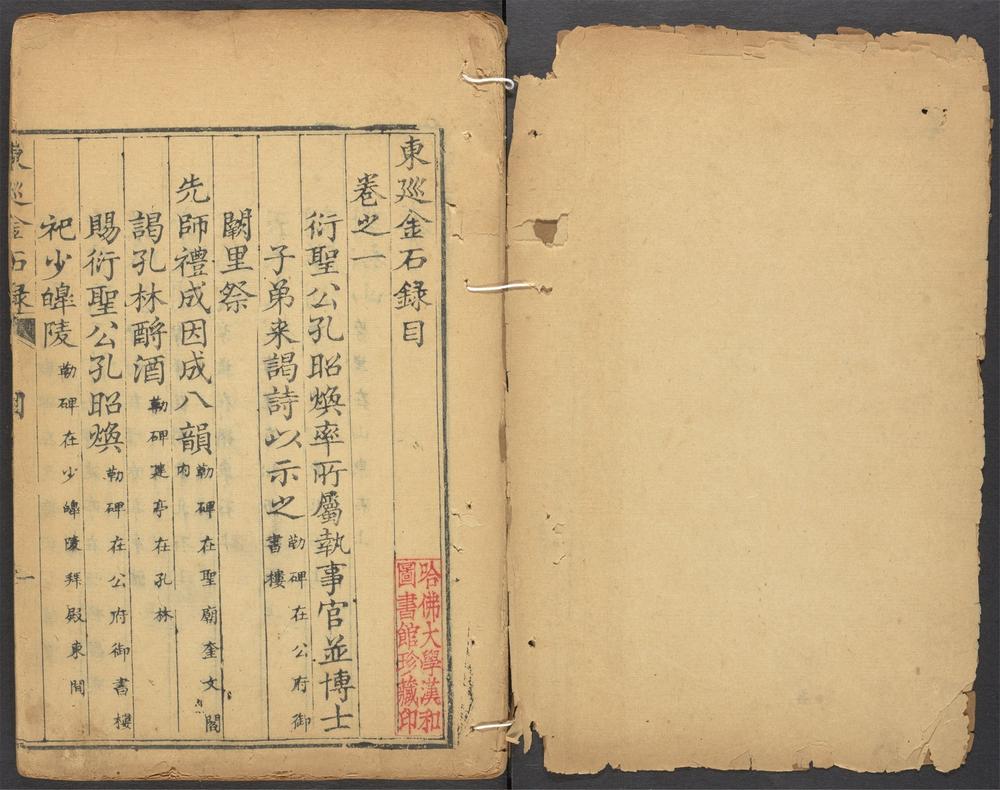 東廵金石録目
哈佛大學漢和
圖書館珍藏印
卷之一
衍聖公孔昭煥率所屬執事官並博士
子弟来謁詩以示之勒碑在公府御
書樓
闕里祭
先師禮成因成八韻勒碑在聖廟奎文閣
内
謁孔林酹酒勒碑建亭在孔林
賜衍聖公孔昭煥勒碑在公府御書樓
祀少皥陵勒碑在少皥陵拜殿東間
東廵金石録 目 一